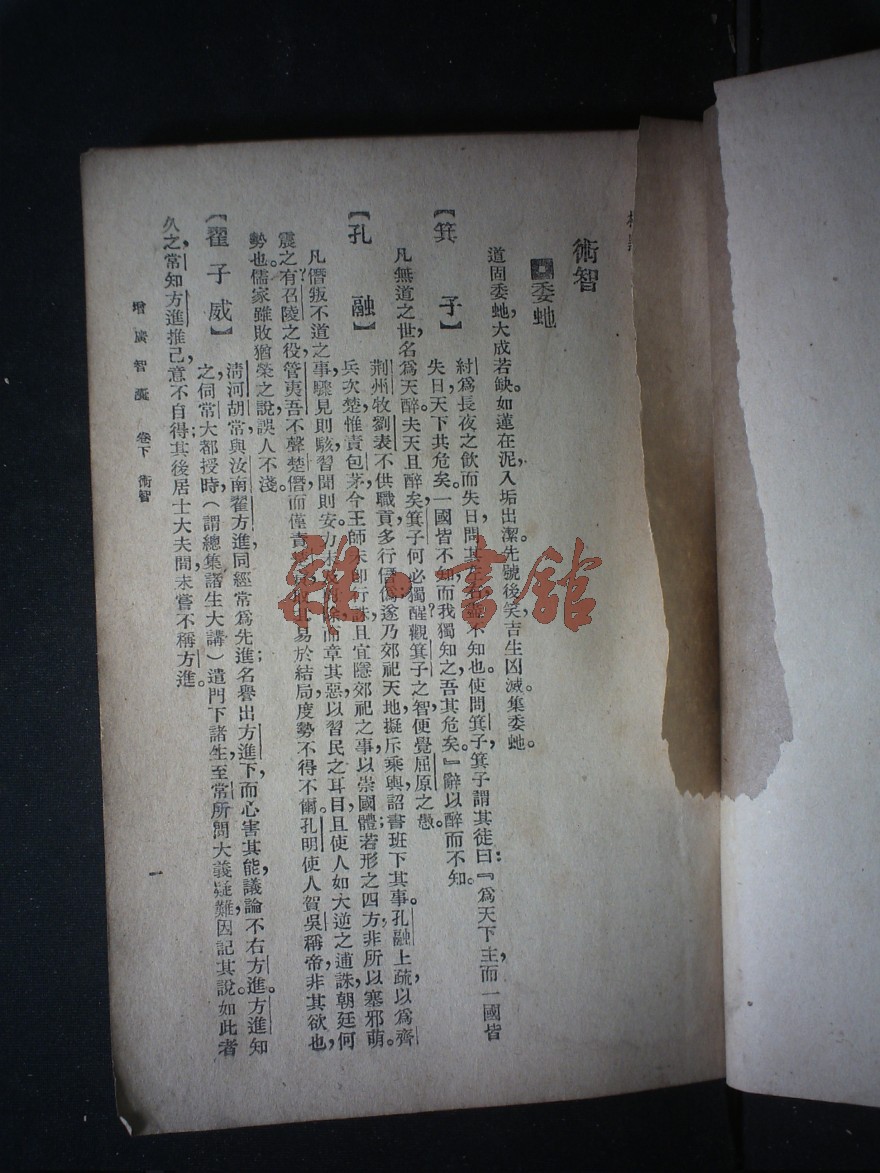 術智
委虵
道固委虵,大成若缺。如蓮在泥,入垢出潔。先號後笑,吉生凶滅。集委虵。
【箕子】
紂爲長夜之飲而失日,問其左右不知也。使問箕子,箕子謂其徒曰:『爲天下主,而一國皆
失日,天下共危矣。一國皆不知,而我獨知之,吾其危矣。』辭以醉而不知。
凡無道之世,名爲天醉。夫天且醉矣,箕子何必獨醒?觀箕子之智,便覺屈原之愚。
【孔融】
荆州牧劉表不供職貢,多行僭僞,遂乃郊祀天地,擬斥乘輿,詔書班下其事。孔融上疏,以爲齊
兵次楚,惟責包茅。今王師未卽行誅,且宜隱郊祀之事,以崇國體;若形之四方,非所以塞邪萌。
凡僭叛不道之事,驟見則駭,習聞則安。力未及除而章其惡,以習民之耳目,且使人如大逆之逋誅,朝廷何
震之有?召陵之役,管夷吾不聲楚僭,而僅責易於結局,度勢不得不爾。孔明使人賀吳稱帝,非其欲也,
勢也。儒家雖敗猶榮之說,誤人不淺。
【翟子威】
淸河胡常與汝南翟方進同經,常爲先進,名譽出方進下,而心害其能,議論不右方進。方進知
之,伺常大都授時,(謂總集諸生大講)遣門下諸生至常所問大義疑難,因記其說。如此者
久之,常知方進推己,意不自得;其後居士大夫間,未嘗不稱方進。
增廣智囊 卷下 術智
一
雜·書館